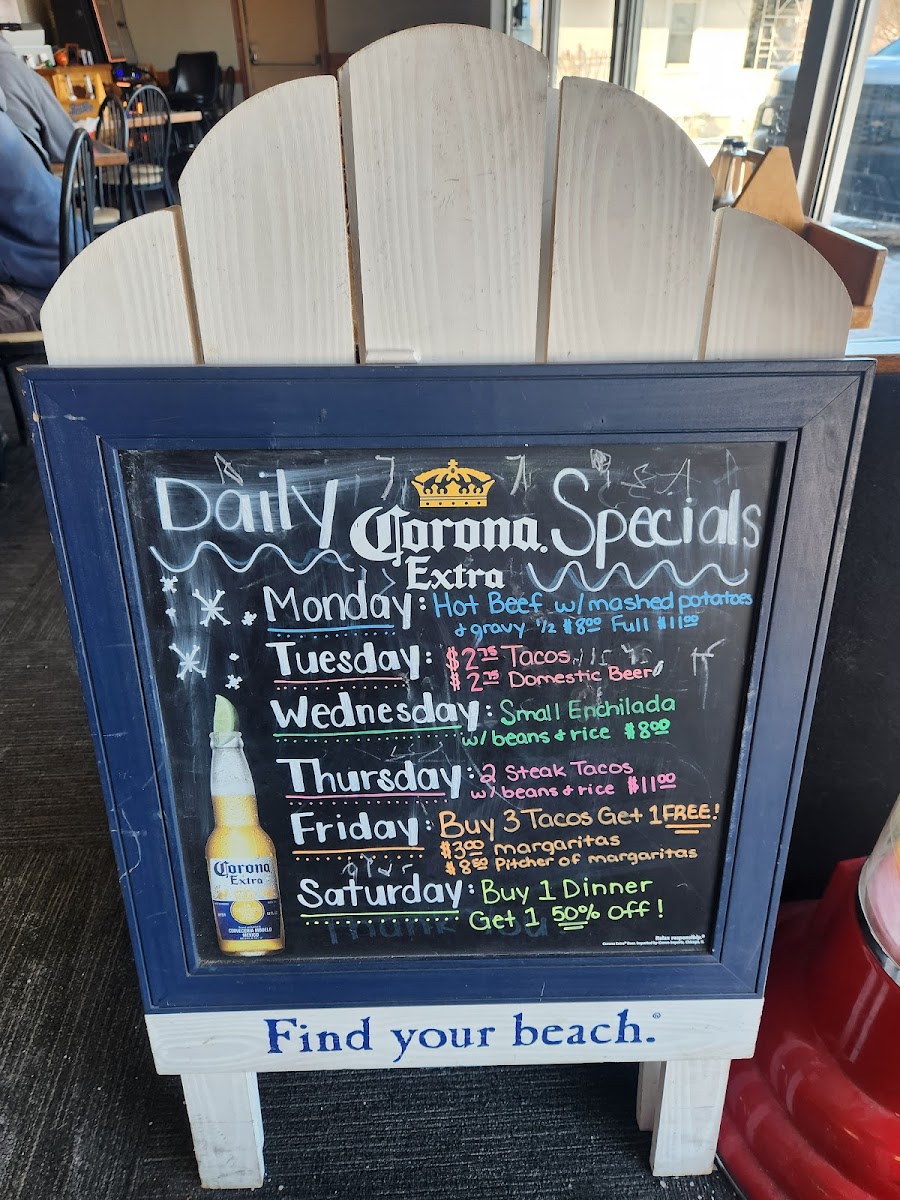 Daily Corona. Specials
Extra
Monday: Hot Beef w/ mashed potatoes
& gravy 1/2 $8.00 Full $11.00
Tuesday: $2.75 Tacos
$2.75 Domestic Beer
Wednesday: Small Enchilada
w/ beans & rice $8.00
Thursday: 2 Steak Tacos
w/ beans & rice $11.00
Friday: Buy 3 Tacos Get 1 FREE!
$3.00 margaritas
$8.50 Pitcher of margaritas
Saturday: Buy 1 Dinner
Get 1 50% off!
Thank
Corona
Extra
CERVECERIA MODELO
MEXICO
Relax responsibly.®
Find your beach.®